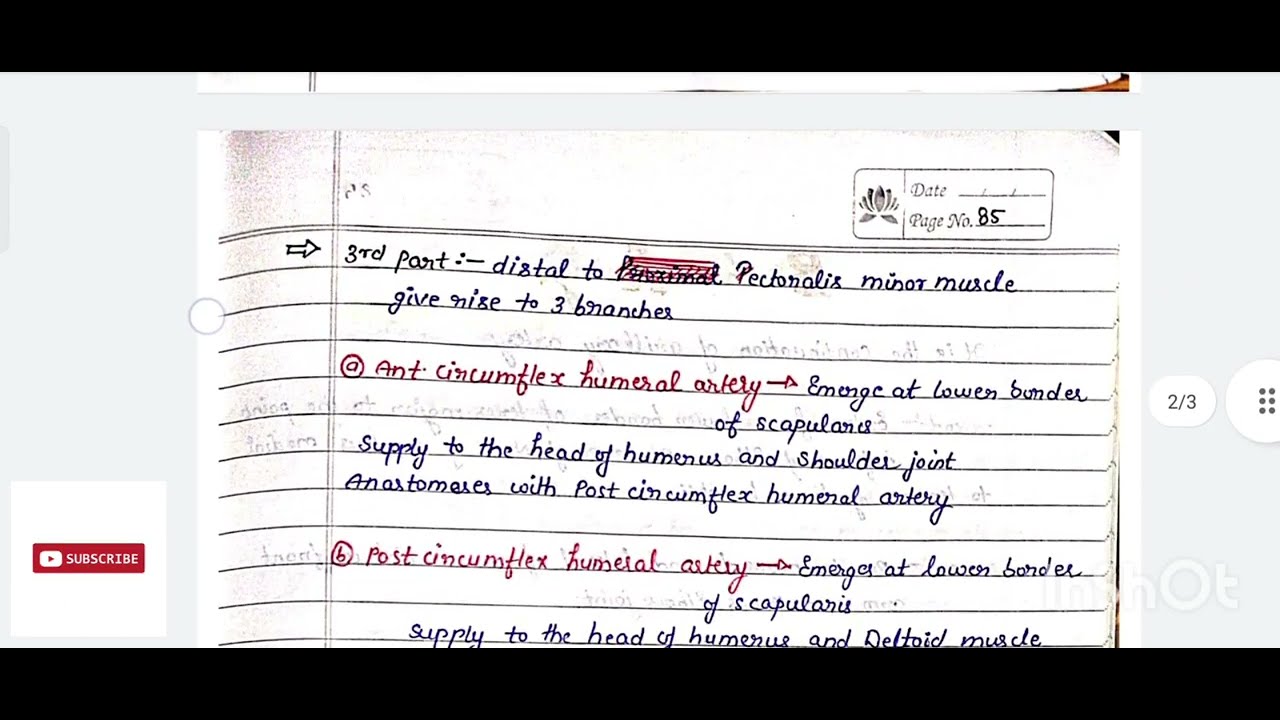 Date
Page No. 85
⇒ 3rd part :- distal to Pectoralis minor muscle
give rise to 3 branches
ⓐ Ant. circumflex humeral artery → Emerge at lower border
of scapularis
Supply to the head of humerus and shoulder joint
Anastomoses with Post circumflex humeral artery
ⓑ Post circumflex humeral artery → Emerges at lower border
of scapularis
Supply to the head of humerus and Deltoid muscle
2/3
SUBSCRIBE
InShOt